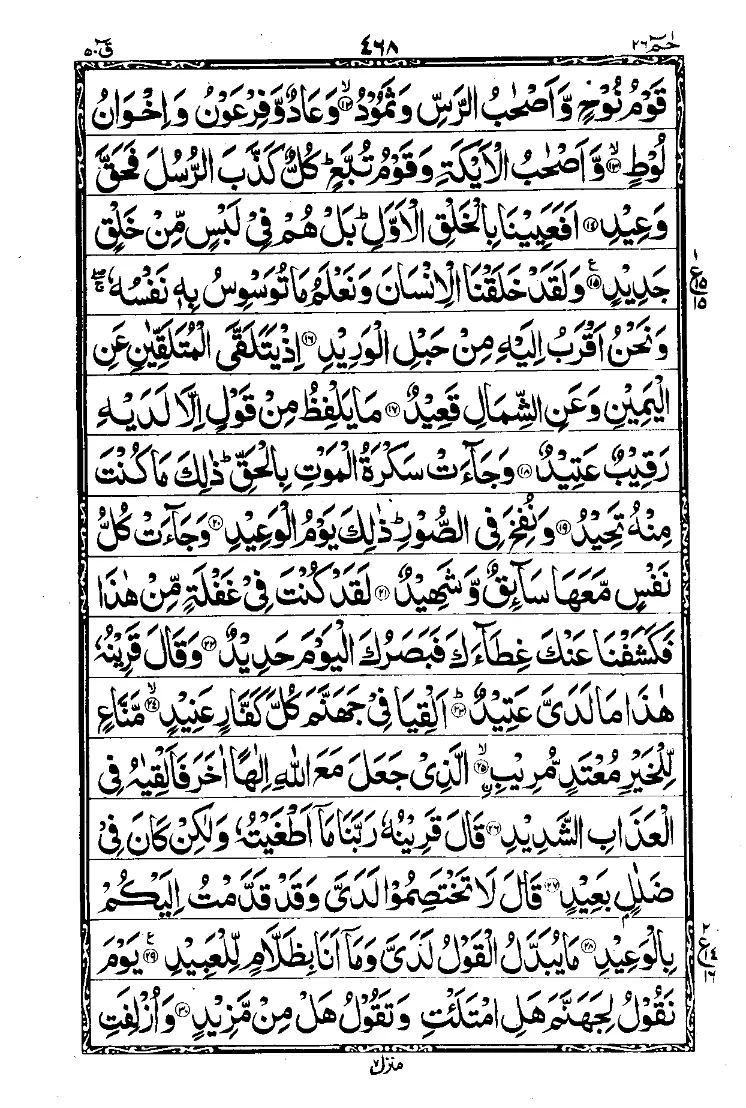 حٰمٓ ٢٦ ٤٦٨ قٓ ٥٠
قَوْمُ نُوْحٍ وَّاَصْحٰبُ الرَّسِّ وَثَمُوْدُ ۙ﴿١٢﴾ وَعَادٌ وَّفِرْعَوْنُ وَاِخْوَانُ
لُوْطٍ ۙ﴿١٣﴾ وَّاَصْحٰبُ الْاَيْكَةِ وَقَوْمُ تُبَّعٍ ؕ كُلٌّ كَذَّبَ الرُّسُلَ فَحَقَّ
وَعِيْدِ ﴿١٤﴾ اَفَعَيِيْنَا بِالْخَلْقِ الْاَوَّلِ ؕ بَلْ هُمْ فِيْ لَبْسٍ مِّنْ خَلْقٍ
جَدِيْدٍ ﴿١٥﴾ ع وَلَقَدْ خَلَقْنَا الْاِنْسَانَ وَنَعْلَمُ مَا تُوَسْوِسُ بِهٖ نَفْسُهٗ ۖۚ
١ ع ١٥ ١٥
وَنَحْنُ اَقْرَبُ اِلَيْهِ مِنْ حَبْلِ الْوَرِيْدِ ﴿١٦﴾ اِذْ يَتَلَقَّى الْمُتَلَقِّيٰنِ عَنِ
الْيَمِيْنِ وَعَنِ الشِّمَالِ قَعِيْدٌ ﴿١٧﴾ مَا يَلْفِظُ مِنْ قَوْلٍ اِلَّا لَدَيْهِ
رَقِيْبٌ عَتِيْدٌ ﴿١٨﴾ وَجَآءَتْ سَكْرَةُ الْمَوْتِ بِالْحَقِّ ؕ ذٰلِكَ مَا كُنْتَ
مِنْهُ تَحِيْدُ ﴿١٩﴾ وَنُفِخَ فِي الصُّوْرِ ؕ ذٰلِكَ يَوْمُ الْوَعِيْدِ ﴿٢٠﴾ وَجَآءَتْ كُلُّ
نَفْسٍ مَّعَهَا سَآئِقٌ وَّشَهِيْدٌ ﴿٢١﴾ لَقَدْ كُنْتَ فِيْ غَفْلَةٍ مِّنْ هٰذَا
فَكَشَفْنَا عَنْكَ غِطَآءَكَ فَبَصَرُكَ الْيَوْمَ حَدِيْدٌ ﴿٢٢﴾ وَقَالَ قَرِيْنُهٗ
هٰذَا مَا لَدَيَّ عَتِيْدٌ ؕ﴿٢٣﴾ اَلْقِيَا فِيْ جَهَنَّمَ كُلَّ كَفَّارٍ عَنِيْدٍ ۙ﴿٢٤﴾ مَّنَّاعٍ
لِّلْخَيْرِ مُعْتَدٍ مُّرِيْبِ ۙ﴿٢٥﴾ ۨالَّذِيْ جَعَلَ مَعَ اللّٰهِ اِلٰهًا اٰخَرَ فَاَلْقِيٰهُ فِي
الْعَذَابِ الشَّدِيْدِ ﴿٢٦﴾ قَالَ قَرِيْنُهٗ رَبَّنَا مَآ اَطْغَيْتُهٗ وَلٰكِنْ كَانَ فِيْ
ضَلٰلٍۭ بَعِيْدٍ ﴿٢٧﴾ قَالَ لَا تَخْتَصِمُوْا لَدَيَّ وَقَدْ قَدَّمْتُ اِلَيْكُمْ
بِالْوَعِيْدِ ﴿٢٨﴾ مَا يُبَدَّلُ الْقَوْلُ لَدَيَّ وَمَآ اَنَا بِظَلَّامٍ لِّلْعَبِيْدِ ﴿٢٩﴾ ع يَوْمَ
٢ ع ١٤ ١٦
نَقُوْلُ لِجَهَنَّمَ هَلِ امْتَلَئْتِ وَتَقُوْلُ هَلْ مِنْ مَّزِيْدٍ ﴿٣٠﴾ وَاُزْلِفَتِ
منزل ٧